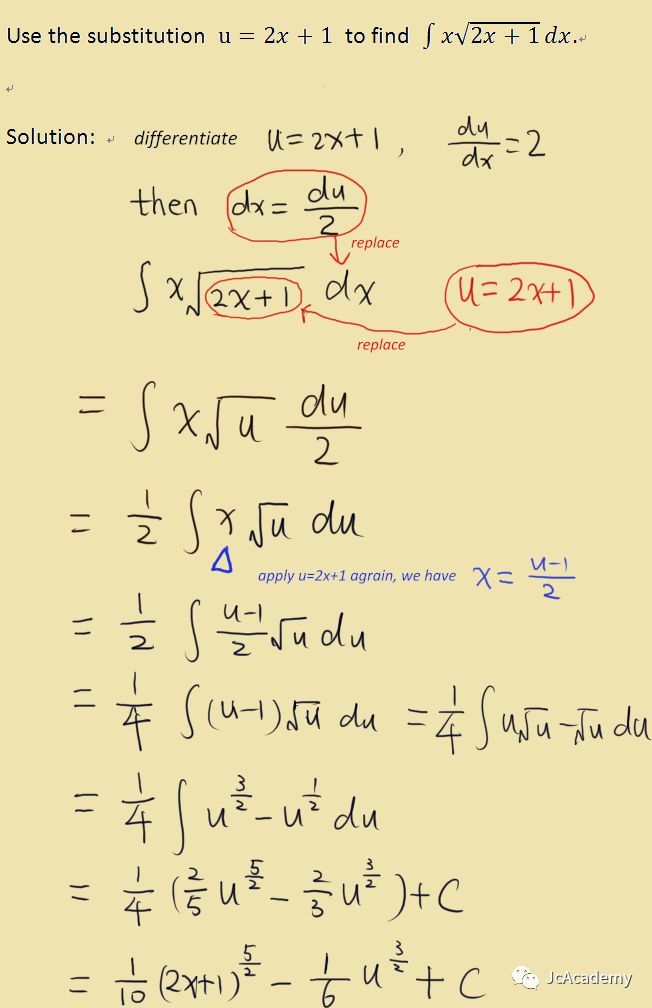 Use the substitution u = 2x + 1 to find ∫ x√(2x + 1) dx.
Solution: differentiate u = 2x+1 , du/dx = 2
then dx = du/2
replace
∫ x√(2x+1) dx u = 2x+1
replace
= ∫ x√u du/2
= 1/2 ∫ x √u du
apply u=2x+1 agrain, we have x = (u-1)/2
= 1/2 ∫ (u-1)/2 √u du
= 1/4 ∫ (u-1)√u du = 1/4 ∫ u√u - √u du
= 1/4 ∫ u^(3/2) - u^(1/2) du
= 1/4 (2/5 u^(5/2) - 2/3 u^(3/2)) + C
= 1/10 (2x+1)^(5/2) - 1/6 u^(3/2) + C
JcAcademy